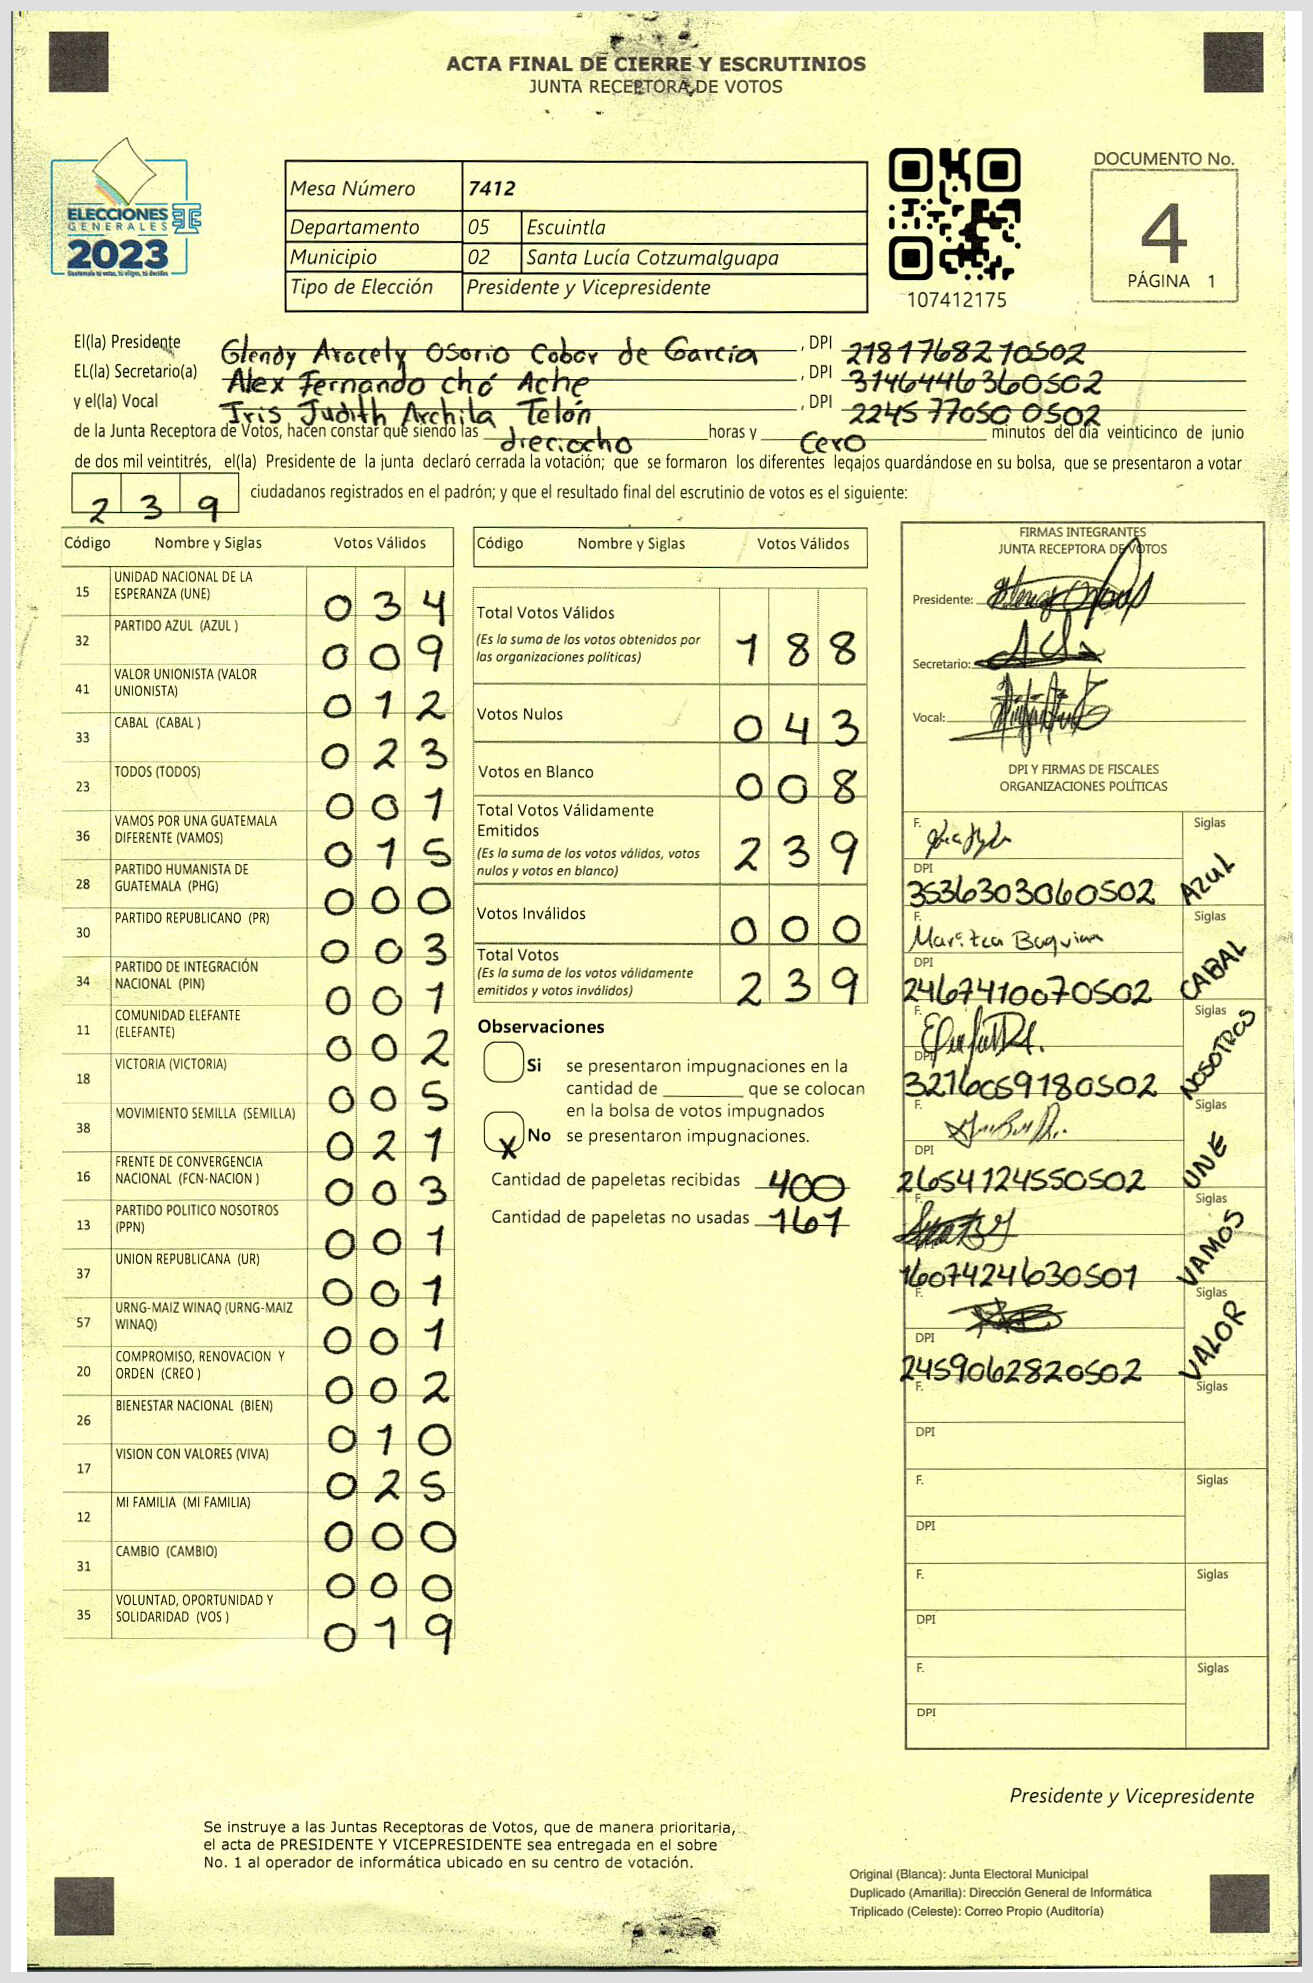 ACTA FINAL DE CIERRE Y ESCRUTINIOS
JUNTA RECEPTORA DE VOTOS
ELECCIONES
GENERALES
2023
Guatemala tú votas, tú eliges, tú decides
Mesa Número 7412
Departamento 05 Escuintla
Municipio 02 Santa Lucía Cotzumalguapa
Tipo de Elección Presidente y Vicepresidente
107412175
DOCUMENTO No.
4
PÁGINA 1
El(la) Presidente Glendy Aracely Osorio Cobor de Garcia, DPI 2181768210502
EL(la) Secretario(a) Alex Fernando chó Ache, DPI 3146446360502
y el(la) Vocal Iris Judith Archila Telón, DPI 2245770500502
de la Junta Receptora de Votos, hacen constar que siendo las dieciocho horas y Cero minutos del día veinticinco de junio
de dos mil veintitrés, el(la) Presidente de la junta declaró cerrada la votación; que se formaron los diferentes legajos guardándose en su bolsa, que se presentaron a votar
239 ciudadanos registrados en el padrón; y que el resultado final del escrutinio de votos es el siguiente:
Código Nombre y Siglas Votos Válidos
15 UNIDAD NACIONAL DE LA
ESPERANZA (UNE) 034
32 PARTIDO AZUL (AZUL ) 009
41 VALOR UNIONISTA (VALOR
UNIONISTA) 012
33 CABAL (CABAL ) 023
23 TODOS (TODOS) 001
36 VAMOS POR UNA GUATEMALA
DIFERENTE (VAMOS) 015
28 PARTIDO HUMANISTA DE
GUATEMALA (PHG) 000
30 PARTIDO REPUBLICANO (PR) 003
34 PARTIDO DE INTEGRACIÓN
NACIONAL (PIN) 001
11 COMUNIDAD ELEFANTE
(ELEFANTE) 002
18 VICTORIA (VICTORIA) 005
38 MOVIMIENTO SEMILLA (SEMILLA) 021
16 FRENTE DE CONVERGENCIA
NACIONAL (FCN-NACION ) 003
13 PARTIDO POLITICO NOSOTROS
(PPN) 001
37 UNION REPUBLICANA (UR) 001
57 URNG-MAIZ WINAQ (URNG-MAIZ
WINAQ) 001
20 COMPROMISO, RENOVACION Y
ORDEN (CREO ) 002
26 BIENESTAR NACIONAL (BIEN) 010
17 VISION CON VALORES (VIVA) 025
12 MI FAMILIA (MI FAMILIA) 000
31 CAMBIO (CAMBIO) 000
35 VOLUNTAD, OPORTUNIDAD Y
SOLIDARIDAD (VOS ) 019
Código Nombre y Siglas Votos Válidos
Total Votos Válidos
(Es la suma de los votos obtenidos por
las organizaciones políticas) 188
Votos Nulos 043
Votos en Blanco 008
Total Votos Válidamente
Emitidos
(Es la suma de los votos válidos, votos
nulos y votos en blanco) 239
Votos Inválidos 000
Total Votos
(Es la suma de los votos válidamente
emitidos y votos inválidos) 239
Observaciones
Si se presentaron impugnaciones en la
cantidad de ________ que se colocan
en la bolsa de votos impugnados
X No se presentaron impugnaciones.
Cantidad de papeletas recibidas 400
Cantidad de papeletas no usadas 161
FIRMAS INTEGRANTES
JUNTA RECEPTORA DE VOTOS
Presidente:
Secretario:
Vocal:
DPI Y FIRMAS DE FISCALES
ORGANIZACIONES POLÍTICAS
F. Siglas
DPI 3536303060502 AZUL
F. Siglas
DPI 2467410070502 CABAL
F. Siglas
DPI 3216059180502 NOSOTROS
F. Siglas
DPI 2654124550502 UNE
F. Siglas
DPI 1607424630501 VAMOS
F. Siglas
DPI 2459062820502 VALOR
F. Siglas
DPI
F. Siglas
DPI
F. Siglas
DPI
F. Siglas
DPI
Presidente y Vicepresidente
Se instruye a las Juntas Receptoras de Votos, que de manera prioritaria,
el acta de PRESIDENTE Y VICEPRESIDENTE sea entregada en el sobre
No. 1 al operador de informática ubicado en su centro de votación.
Original (Blanca): Junta Electoral Municipal
Duplicado (Amarilla): Dirección General de Informática
Triplicado (Celeste): Correo Propio (Auditoría)